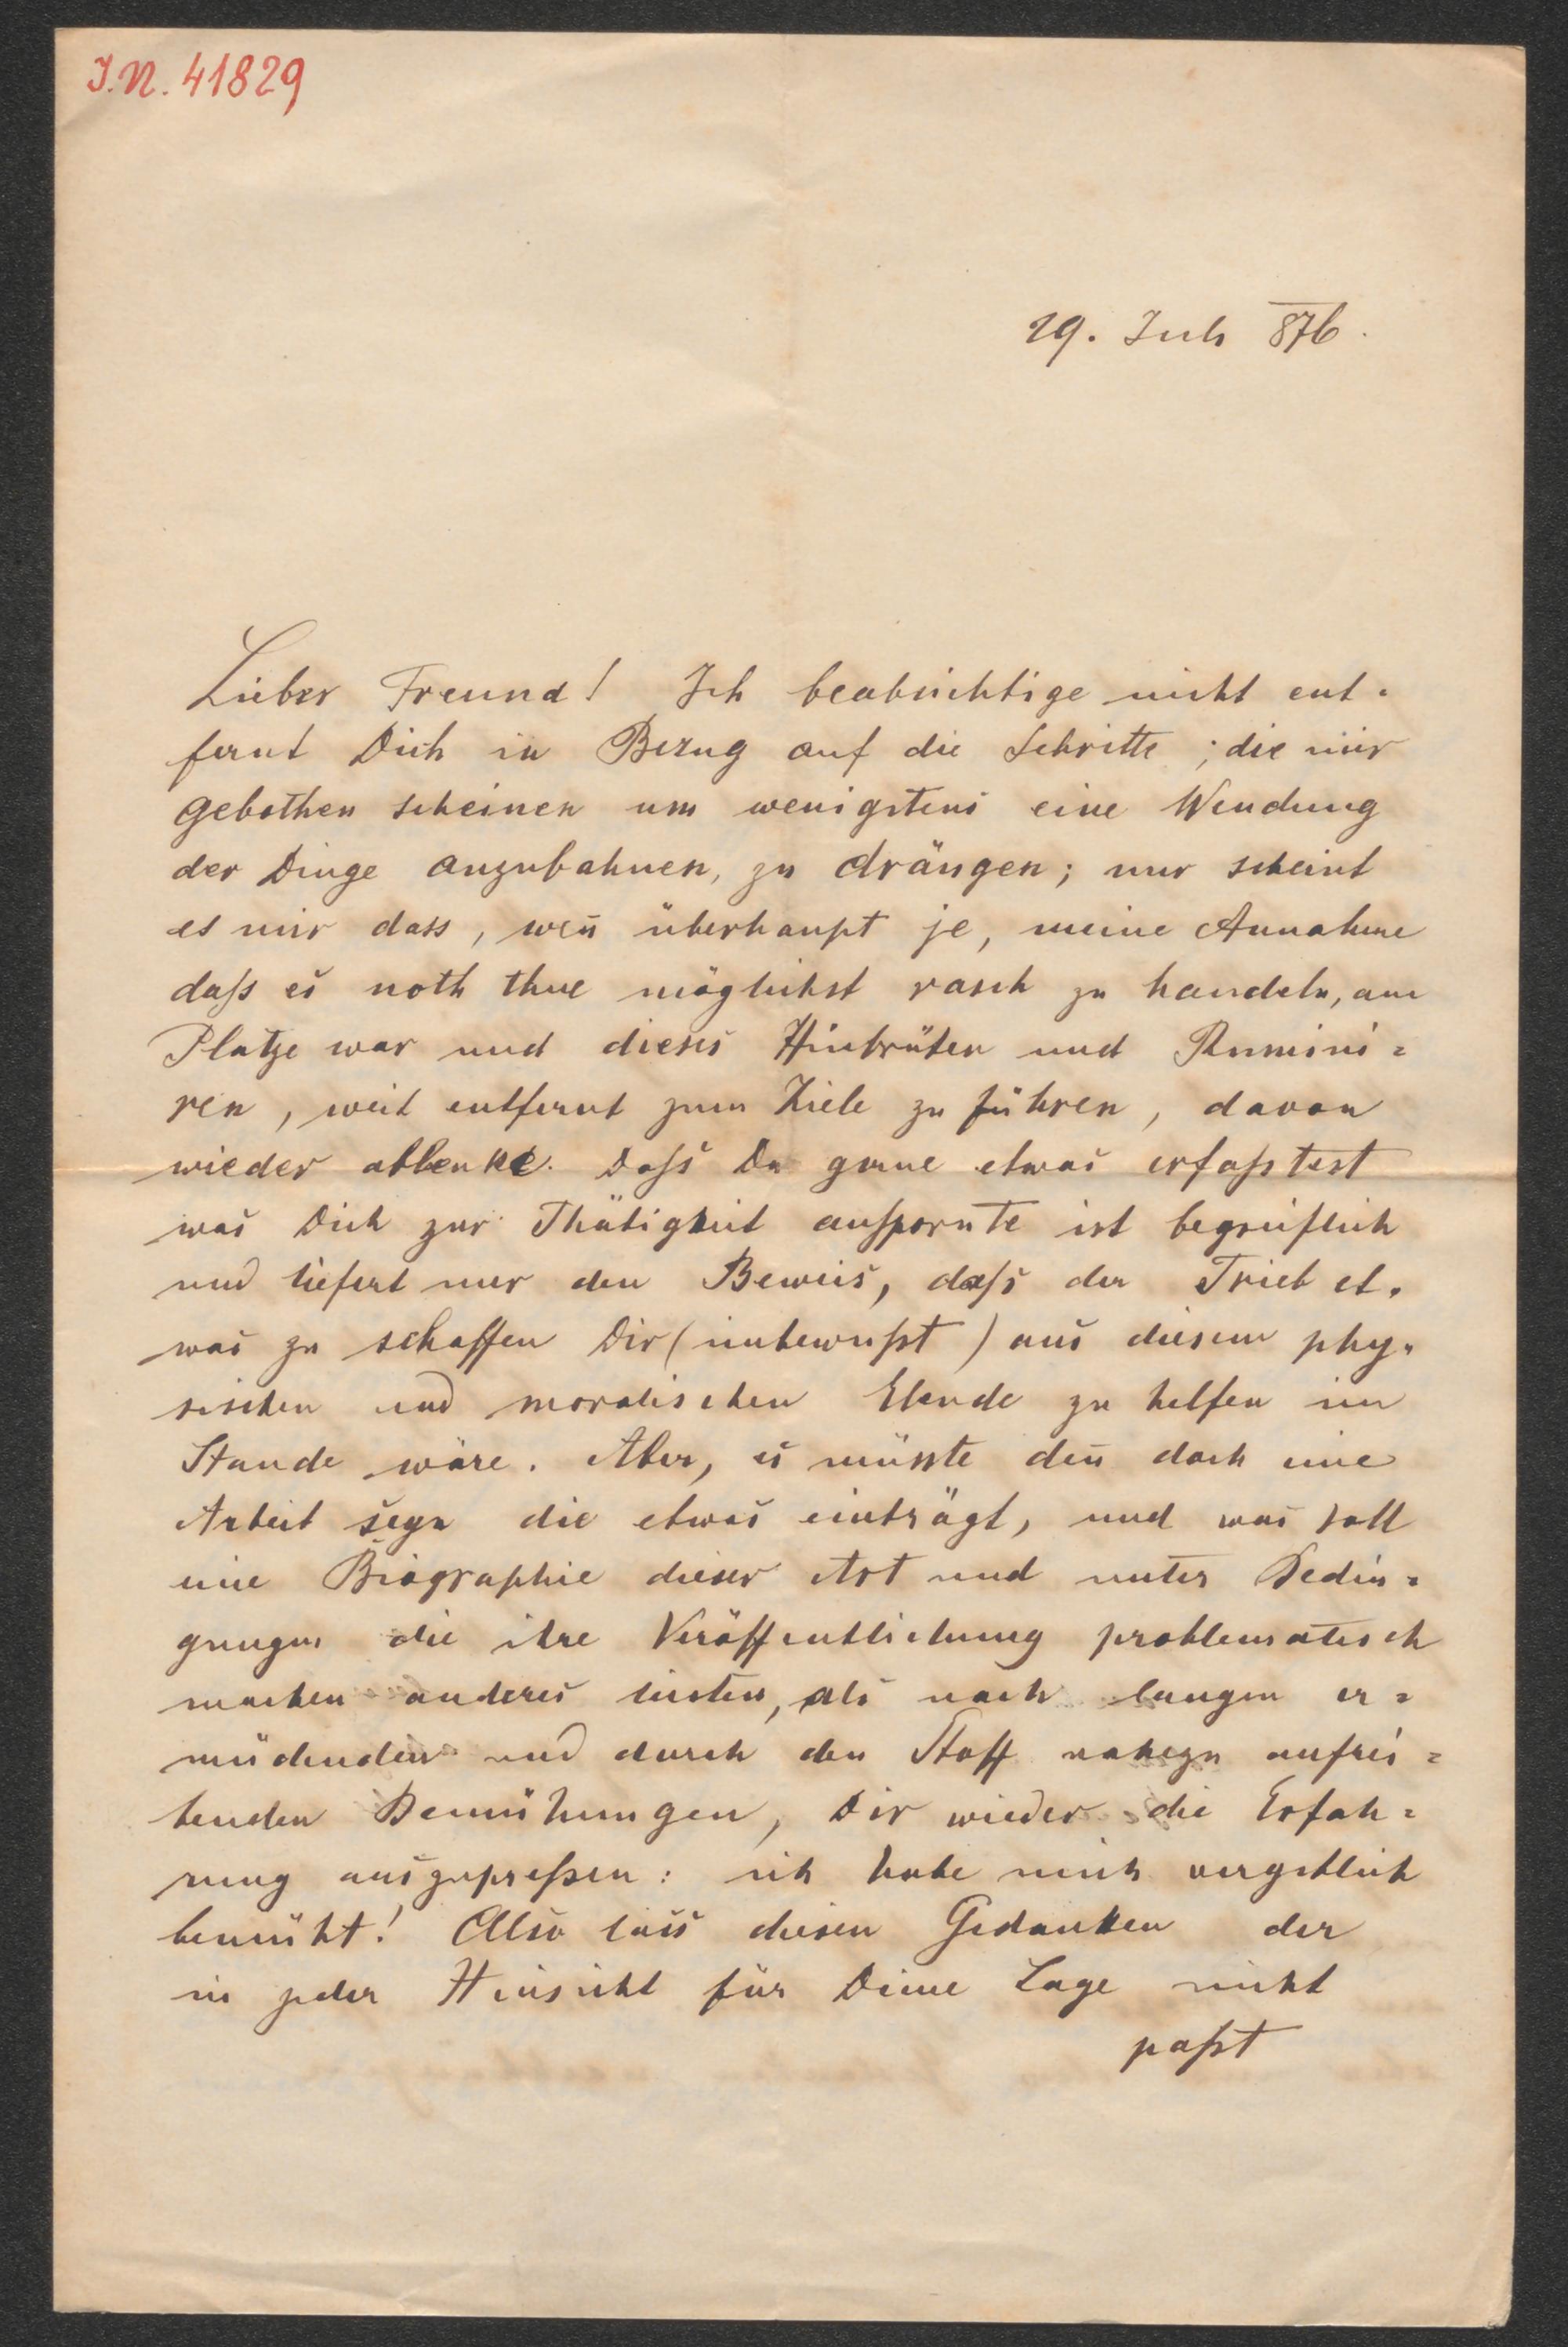 I.N. 41829
29. Juli 876.
Lieber Freund! Ich beabsichtige nicht ent-
fernt Dich in Bezug auf die Schritte, die mir
gebothen scheinen um wenigstens eine Wendung
der Dinge anzubahnen, zu drängen; nur scheint
es mir dass, wen̄ überhaupt je, meine Annahme
daß es noth thue möglichst rasch zu handeln, am
Platze war und dieses Hinbrüten und Rumini=
ren, weit entfernt zum Ziele zu führen, davon
wieder ablenke. Daß Du gerne etwas erfaßtest
was Dich zur Thätigkeit anspornte ist begreiflich
und liefert nur den Beweis, daß der Trieb et-
was zu schaffen Dir (unbewußt) aus diesem phy-
sischen und moralischen Elende zu helfen im
Stande wäre. Aber, es müsste den̄ doch eine
Arbeit seyn die etwas einträgt, und was soll
eine Biographie dieser Art und unter Bedin=
gungen die ihre Veröffentlichung problematisch
machen anderes leisten, als nach langen er=
müdenden und durch den Stoff nahezu aufrei=
benden Bemühungen, Dir wieder die Erfah=
rung auszupreßen: ich habe mich vergeblich
bemüht! Also lass diesen Gedanken der
in jeder Hinsicht für Deine Lage nicht
paßt